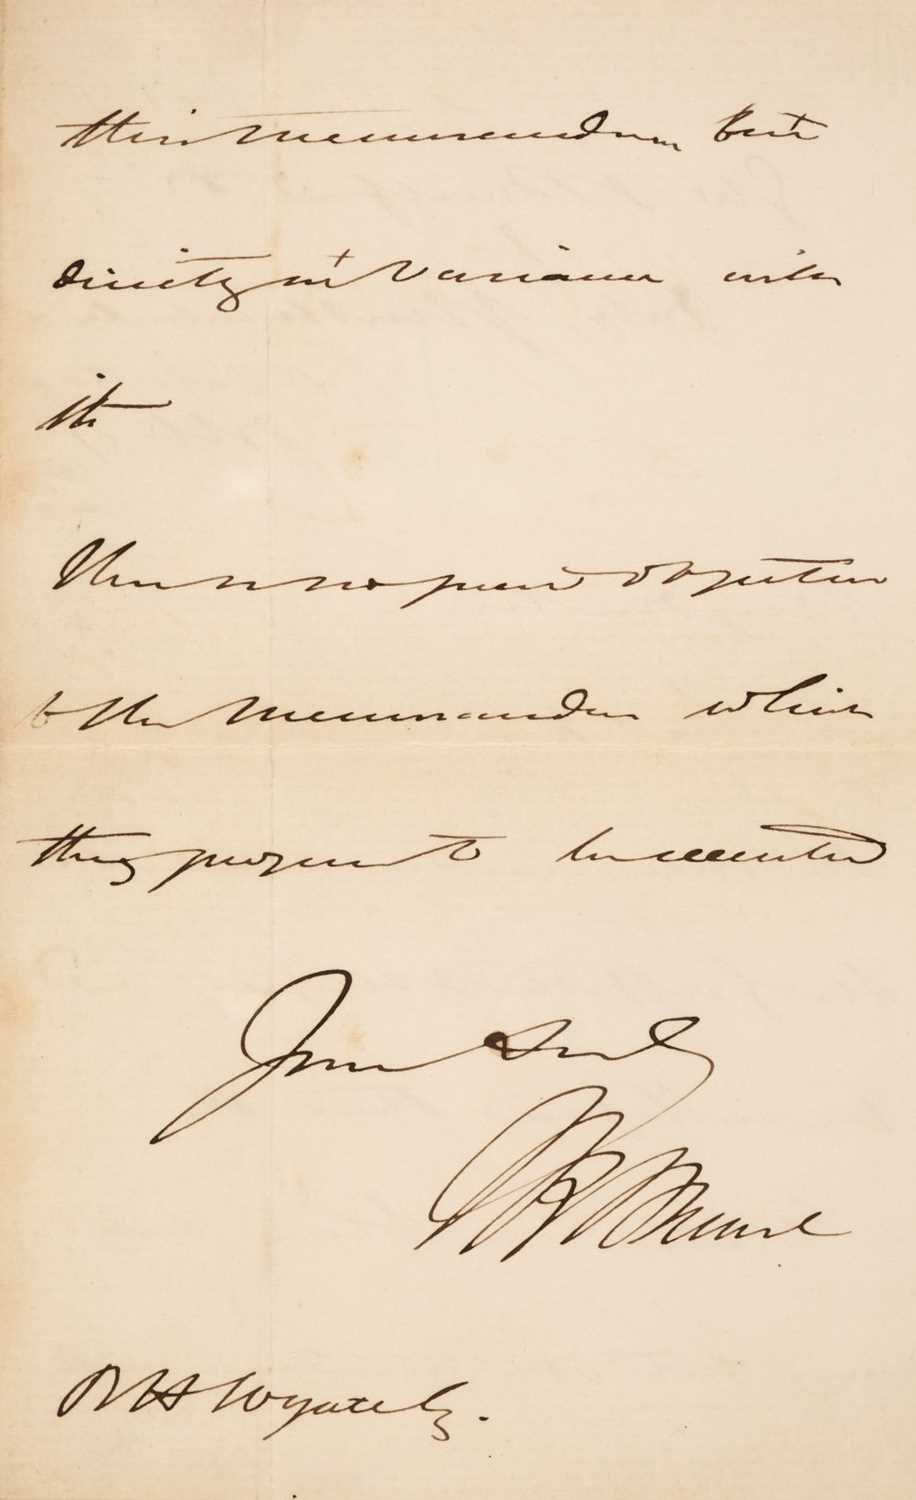 this memorandum but
directly at variance with
it
There is no special objection
to the memorandum which
they propose to be executed
Yours Truly
I K Brunel
R H Wyatt Esq.